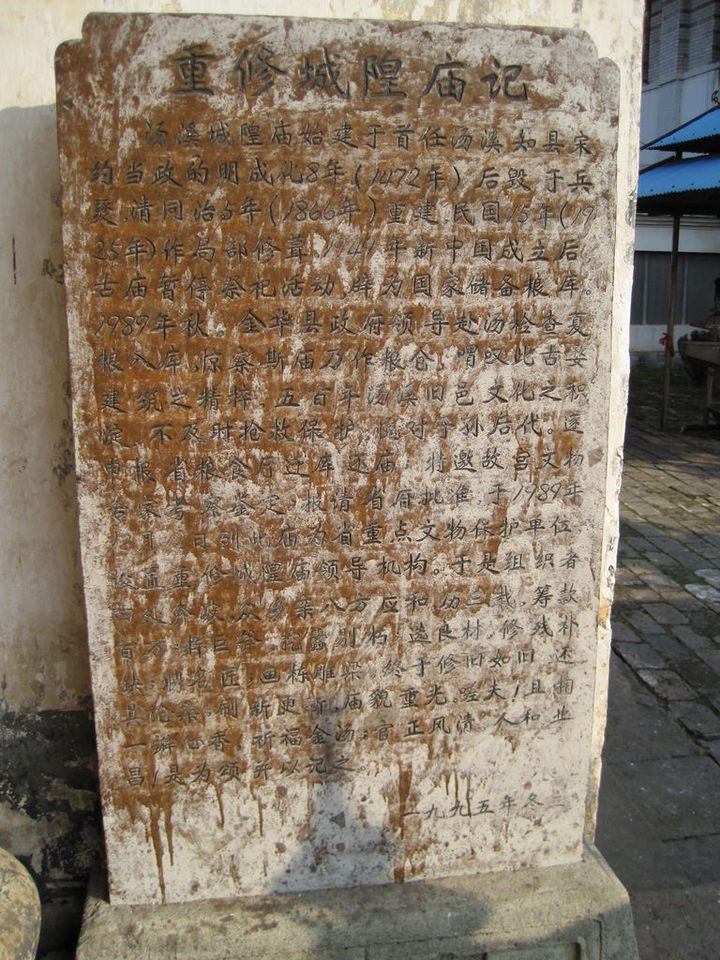 重修城隍庙记
汤溪城隍庙始建于首任汤溪知县宋
约当政的明成化8年(1472年)后毁于兵
燹.清同治5年(1866年)重建.民国15年(19
25年)作局部修葺.1949年新中国成立后
古庙暂停祭祀活动,辟为国家储备粮库。
1989年秋。金华县政府领导赴汤检查夏
粮入库,惊察斯庙乃作粮仓,喟叹此古娄
建筑之精粹,五百年汤溪旧邑文化之积
淀,不及时抢救保护,愧对子孙后代。遂
申报省粮食厅迁库还庙;特邀故宫文物
专家考察鉴定;报请省府批准.于1989年
月 日列此庙为省重点文物保护单位
设置重修城隍庙领导机构。于是组织者
四处奔波,众乡亲八方应和,历三载,筹款
百万;择巨 ;挖蠹剔朽;选良材,修残补
缺;聘名匠;画栋雕梁.终于修旧如旧还
其 ;新更新 庙貌重光.嗟夫!且
一瓣心香,祈福金汤;官正风清.人和业
昌!是为颂并以记之。
一九九五年冬